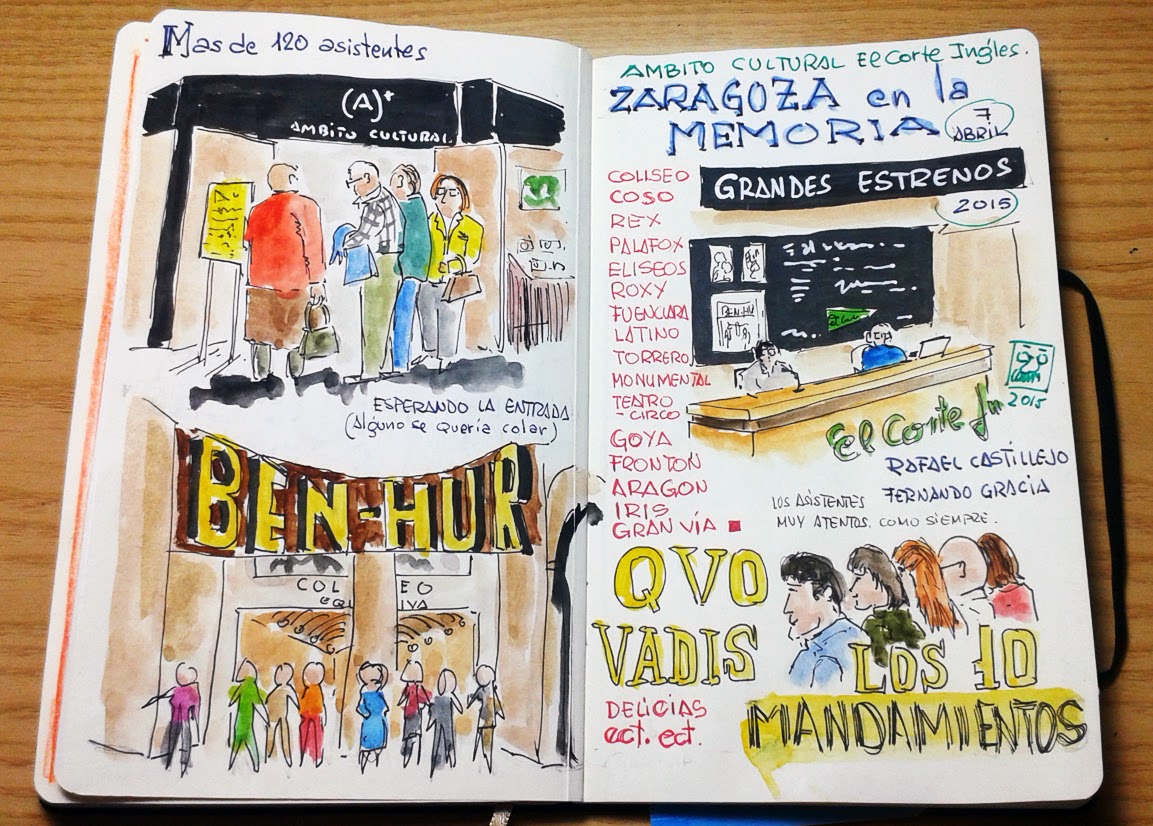 Mas de 120 asistentes
(A)+
AMBITO CULTURAL
ESPERANDO LA ENTRADA
(Alguno se quería colar)
BEN-HUR
COL EO
EQ IVA
AMBITO CULTURAL El Corte Ingles.
ZARAGOZA en la
MEMORIA
7
ABRIL
GRANDES ESTRENOS
2015
COLISEO
COSO
REX
PALAFOX
ELISEOS
ROXY
FUENCLARA
LATINO
TORRERO
MONUMENTAL
TEATRO
-CIRCO
GOYA
FRONTON
ARAGON
IRIS
GRAN VÍA
BEN-HU
El Corte In
2015
RAFAEL CASTILLEJO
FERNANDO GRACIA
LOS ASISTENTES
MUY ATENTOS. COMO SIEMPRE.
QVO
VADIS
LOS 10
MANDAMIENTOS
DELICIAS
ect. ect.